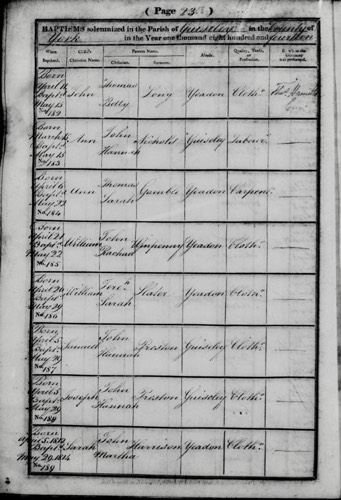 ( Page 23 )
BAPTISMS solemnized in the Parish of Guiseley in the County of
York in the Year one thousand eight hundred and fourteen
When Baptized. Child's Christian Name. Parents Name. Christian. Surname. Abode. Quality, Trade, or Profession. By whom the Ceremony was performed.
Born
April
Bapt.d
May 15
No. 182
John
Thomas
Betty
Yeadon
Cloth.r
Born
March
Bapt.d
May 15
No. 183
Ann
John
Hannah
Nichols
Guiseley
Labour.r
Born
April 6
Bapt.d
May 22
No. 184
Ann
Thomas
Sarah
Gamble
Yeadon
Carpen.r
Born
April 21
Bapt.d
May 22
No. 185
William
John
Rachael
Winpenny
Yeadon
Cloth.r
Born
April 20
Bapt.d
May 29
No. 186
William
Jere.h
Sarah
Slater
Yeadon
Cloth.r
Born
April 5
Bapt.d
May 29
No. 187
Samuel
John
Hannah
Preston
Guiseley
Cloth.r
Born
April 5
Bapt.d
May 29
No. 188
Joseph
John
Hannah
Preston
Guiseley
Cloth.r
Born
April 5. 1812
Bapt.d
May 29. 1814
No. 189
Sarah
John
Martha
Harrison
Yeadon
Cloth.r